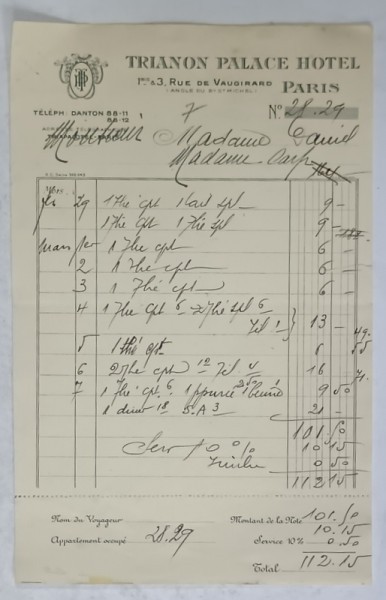 TRIANON PALACE HOTEL
1BIS & 3, RUE DE VAUGIRARD PARIS
(ANGLE DU Bd St MICHEL)
TÉLÉPH: DANTON 88-11
88-12
7 No 28.29
Monsieur Madame
Madame
29 1 thé cpt 9 -
1 thé cpt 1 thé spl 9 -
mars 1er 1 thé cpt 6 -
2 1 thé cpt 6 -
3 1 thé cpt 6 -
4 1 thé cpt 6 thé spl 6
13 - 49.
5 1 thé cpt 6 55
6 2 thé cpt 12 4 16 71.
7 1 thé cpt 6 9 50
1 diner 18 3 21 -
101.50
Serv 10 % 10 15
Timbre 0 50
112 15
Nom du Voyageur Montant de la Note 101.50
Appartement occupé 28.29 Service 10% 10.15
0.50
Total 112.15